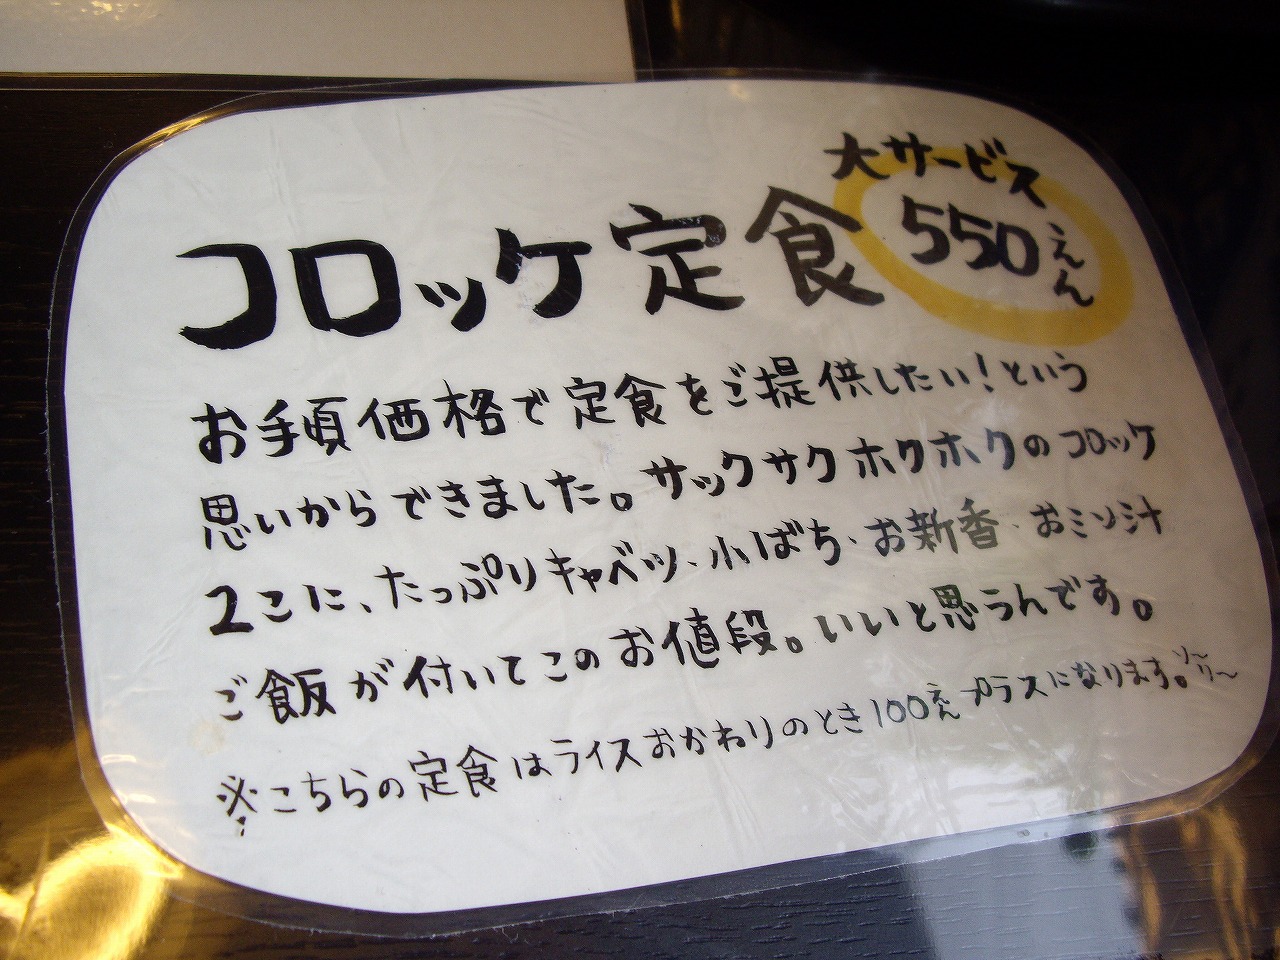 大サービス
コロッケ定食 550えん
お手頃価格で定食をご提供したい！という
思いからできました。サックサクホクホクのコロッケ
2こに、たっぷりキャベツ・小ばち・お新香・おミソ汁
ご飯が付いてこのお値段。いいと思うんです。
※こちらの定食はライスおかわりのとき100えんプラスになります。ソ〜リ〜